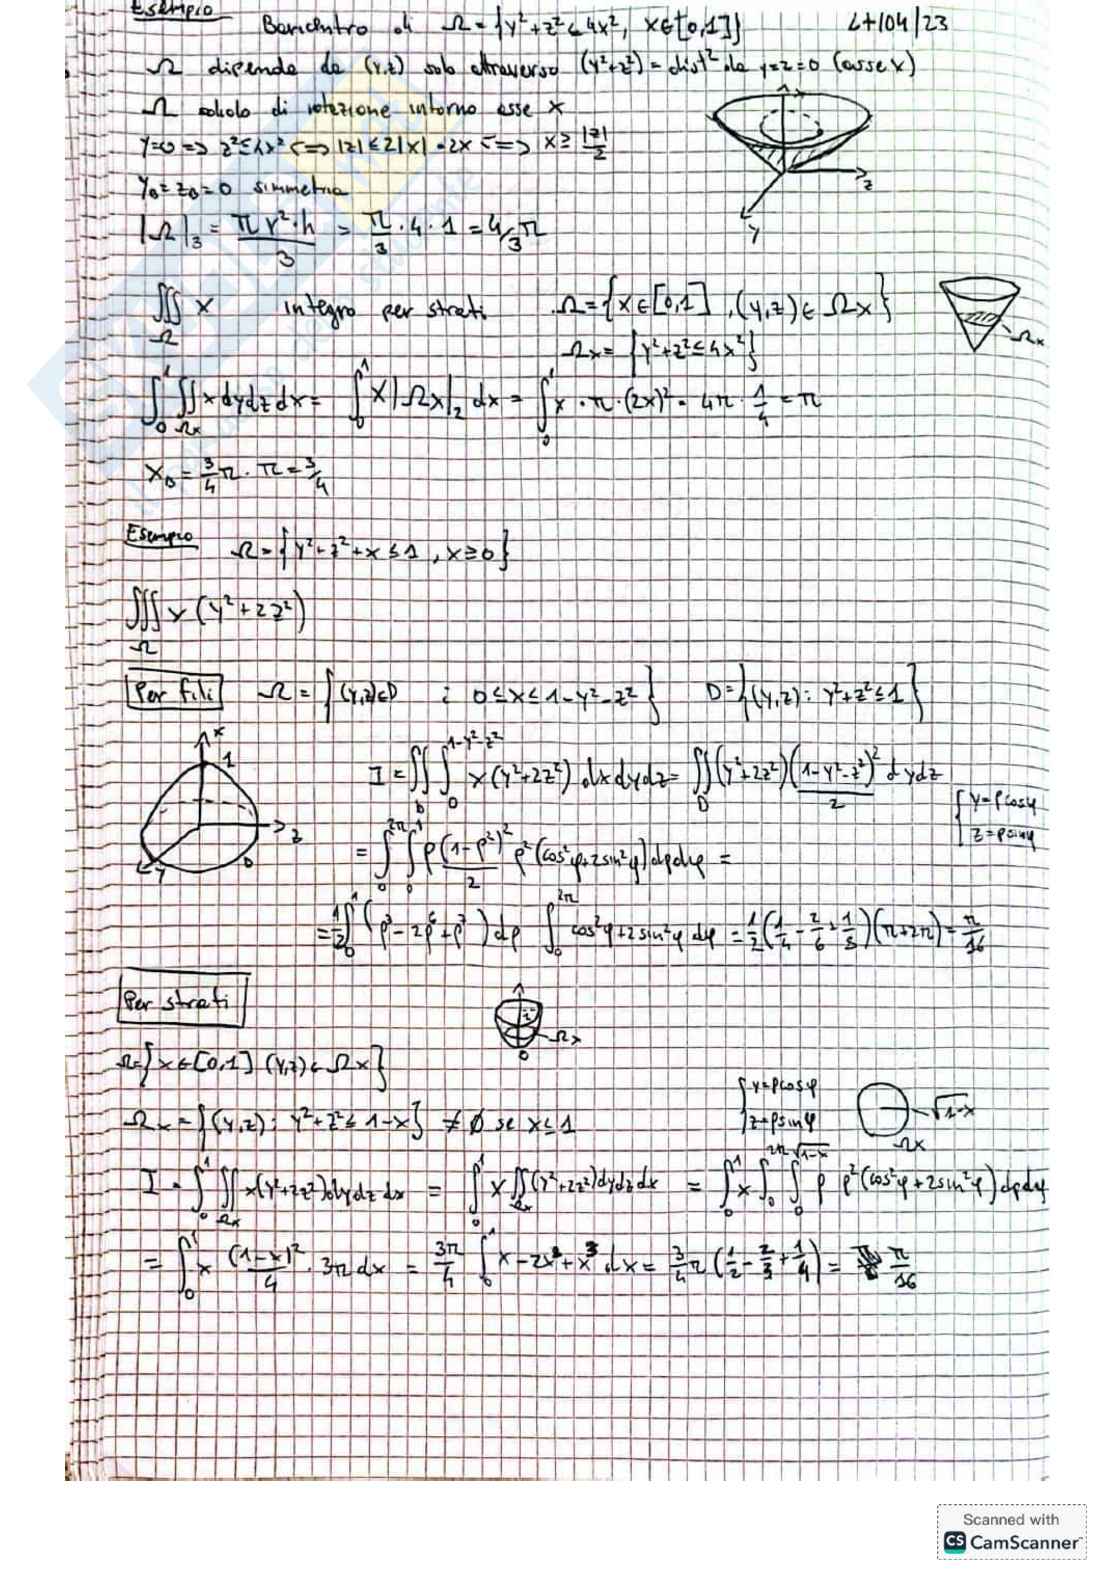 Esempio
Baricentro di Ω = {y²+z² ≤ 4x², x∈[0,1]}
27/04/23
Ω dipende da (y,z) solo attraverso (y²+z²) = dist² da y=z=0 (asse x)
Ω solido di rotazione intorno asse x
y=0 => z² ≤ 4x² <=> |z| ≤ 2|x| = 2x <=> x ≥ |z|/2
y_B = z_B = 0 simmetria
|Ω|₃ = πr²·h/3 = π/3 · 4 · 1 = 4/3 π
x
z
y
∭_Ω x integro per strati Ω = {x∈[0,1], (y,z)∈Ωx}
Ωx = {y²+z² ≤ 4x²}
Ωx
∫₀¹ ∬_Ωx x dydz dx = ∫₀¹ x|Ωx|₂ dx = ∫₀¹ x · π · (2x)² = 4π · 1/4 = π
x_B = 3/4π · π = 3/4
Esempio Ω = {y²+z²+x ≤ 1, x ≥ 0}
∭_Ω x (y²+2z²)
Per fili Ω = {(y,z)∈D ; 0 ≤ x ≤ 1-y²-z²} D = {(y,z): y²+z² ≤ 1}
x
1
z
y
D
I = ∬_D ∫₀^(1-y²-z²) x(y²+2z²) dx dydz = ∬_D (y²+2z²) (1-y²-z²)²/2 dydz
{y=ρcosφ
z=ρsinφ
= ∫₀^2π ∫₀¹ ρ (1-ρ²)²/2 ρ²(cos²φ+2sin²φ) dρdφ =
= 1/2 ∫₀¹ (ρ³ - 2ρ⁶ + ρ⁷) dρ ∫₀^2π cos²φ+2sin²φ dφ = 1/2 (1/4 - 2/6 + 1/8)(π+2π) = π/16
Per strati
Ωx
Ω={x∈[0,1] (y,z)∈Ωx}
Ωx = {(y,z): y²+z² ≤ 1-x} ≠ ∅ se x ≤ 1
{y=ρcosφ
z=ρsinφ
√1-x
Ωx
I = ∫₀¹ ∬_Ωx x(y²+2z²) dydz dx = ∫₀¹ x ∬_Ωx (y²+2z²) dydz dx = ∫₀¹ x ∫₀^2π ∫₀^√1-x ρ ρ²(cos²φ+2sin²φ) dρdφ
= ∫₀¹ x (1-x)²/4 · 3π dx = 3π/4 ∫₀¹ x - 2x² + x³ dx = 3/4 π (1/2 - 2/3 + 1/4) = π/16
Scanned with
CS CamScanner